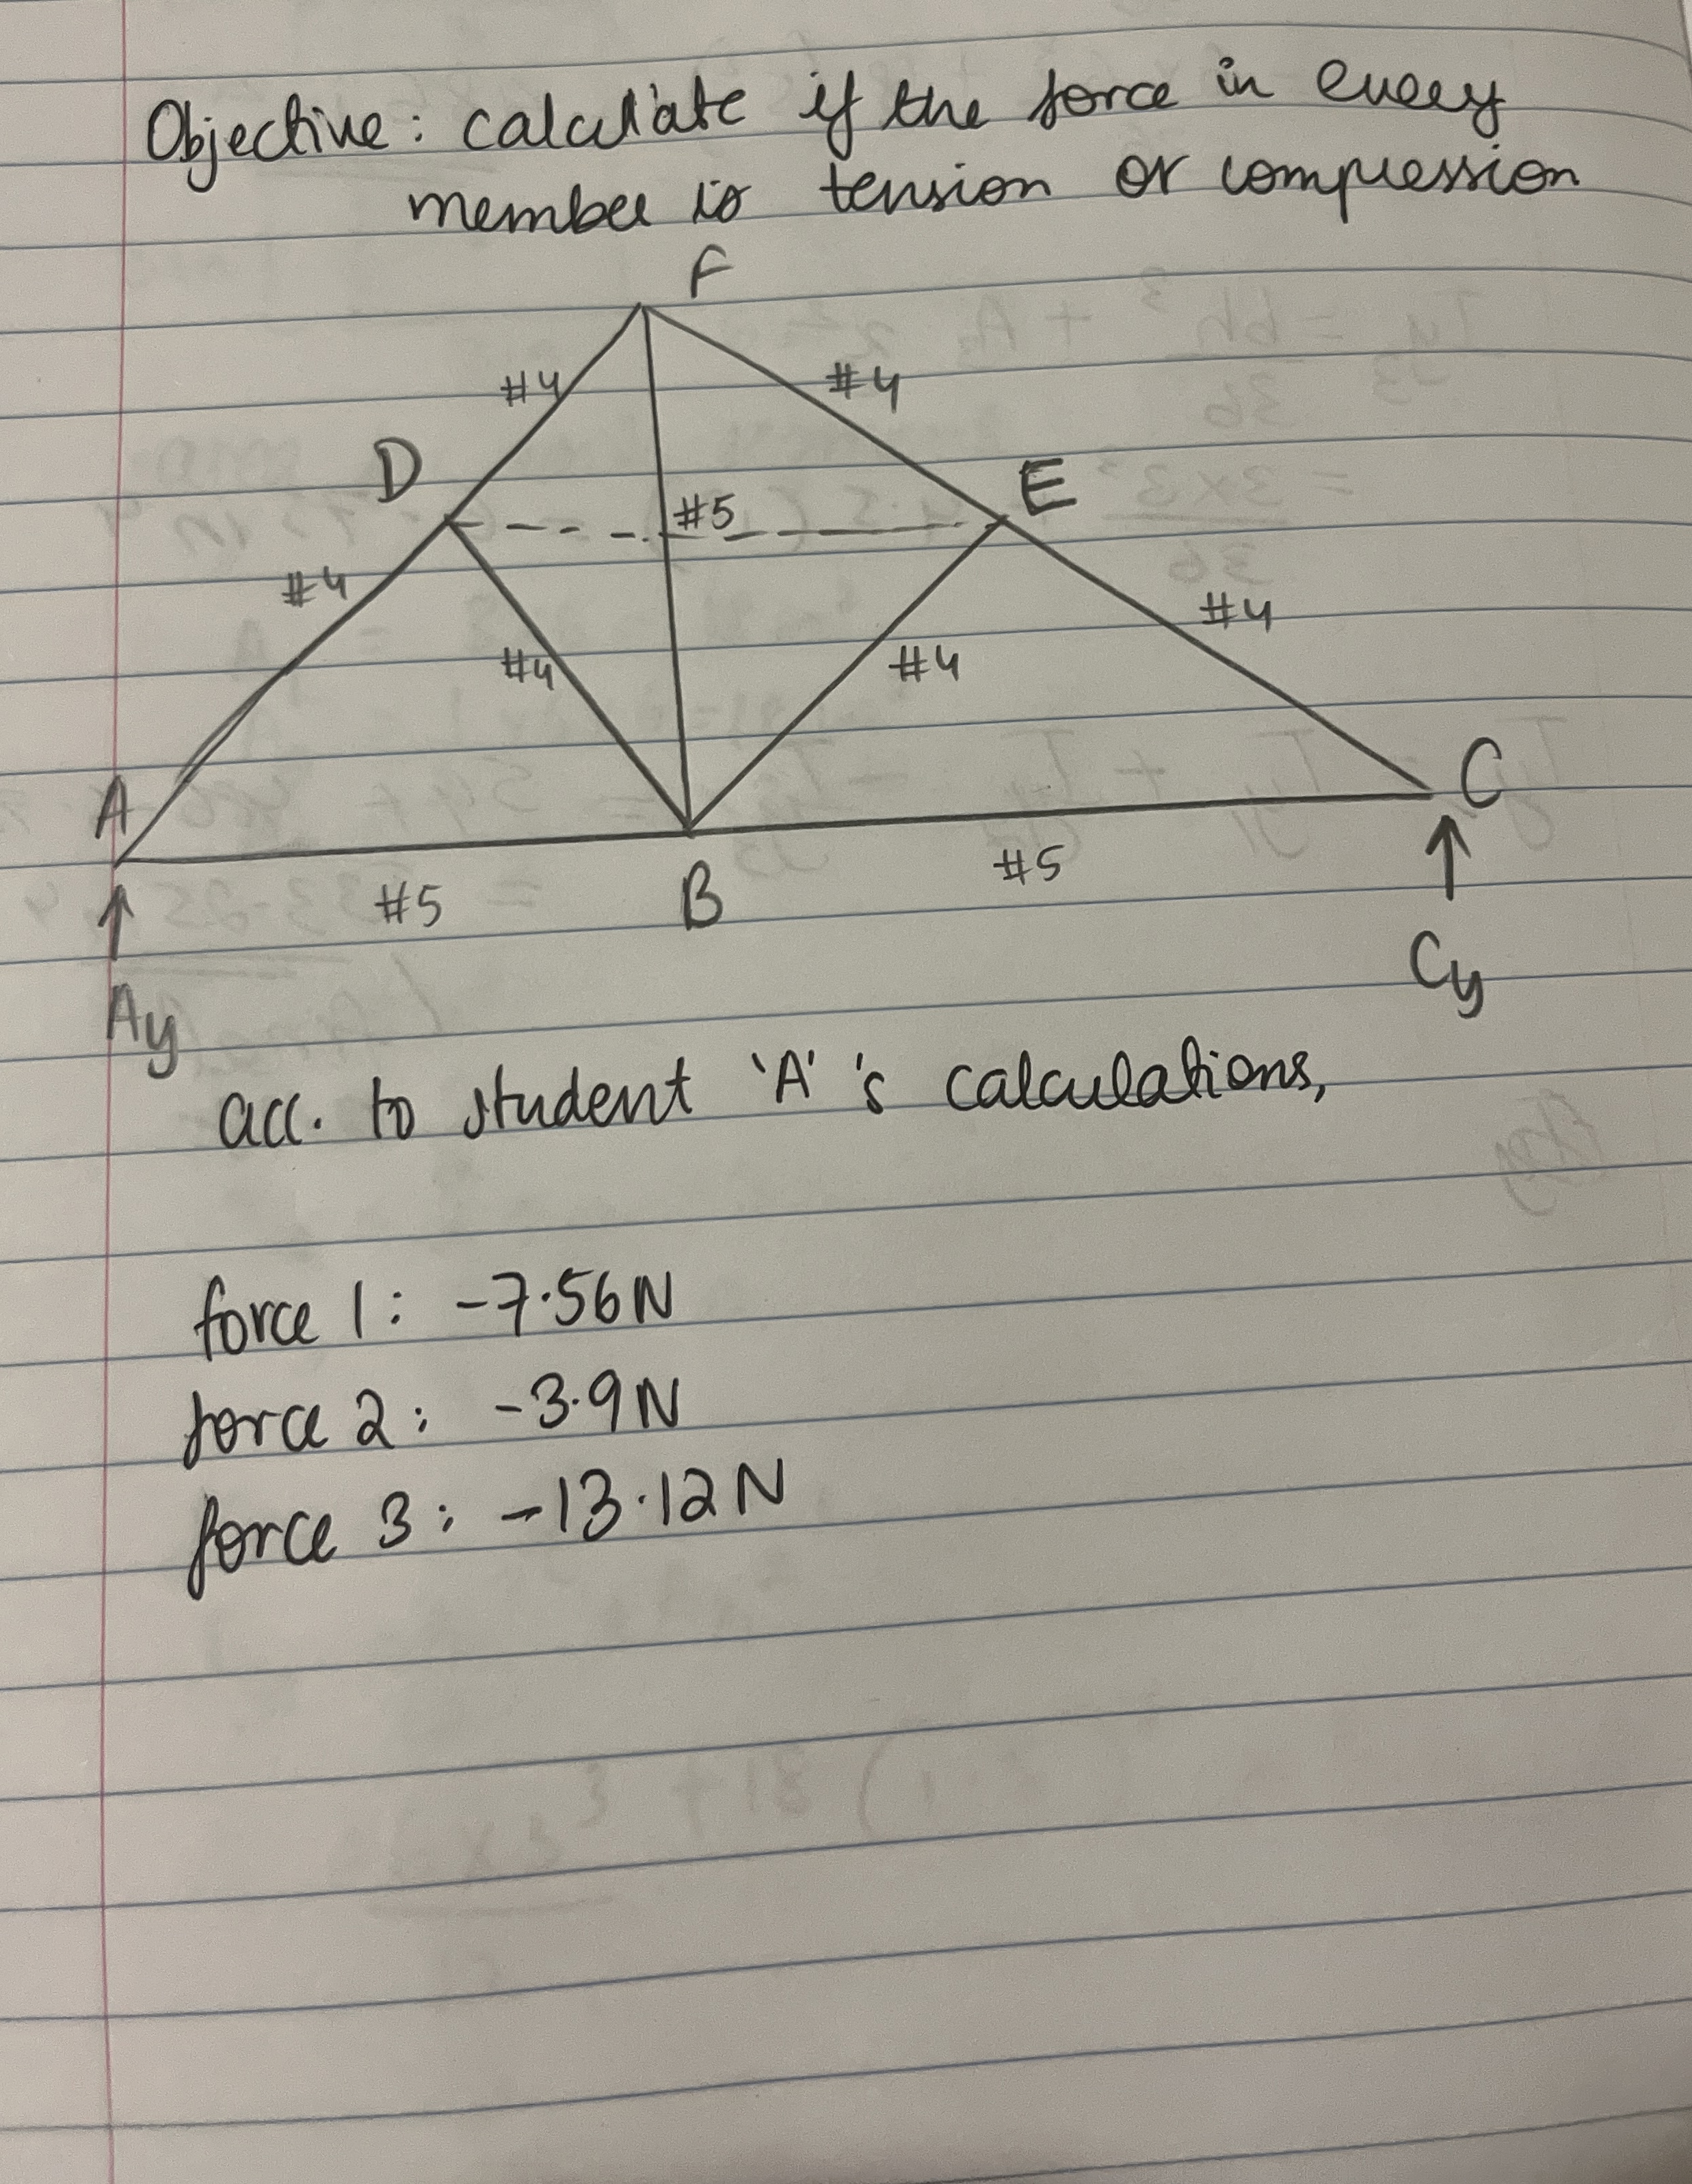 Objective: calculate if the force in every
member is tension or compression
F
#4
#4
D
E
#5
#4
#4
#4
#4
A
C
#5
B
#5
Ay
Cy
acc. to student 'A' 's calculations,
force 1: -7.56N
force 2: -3.9N
force 3: -13.12N